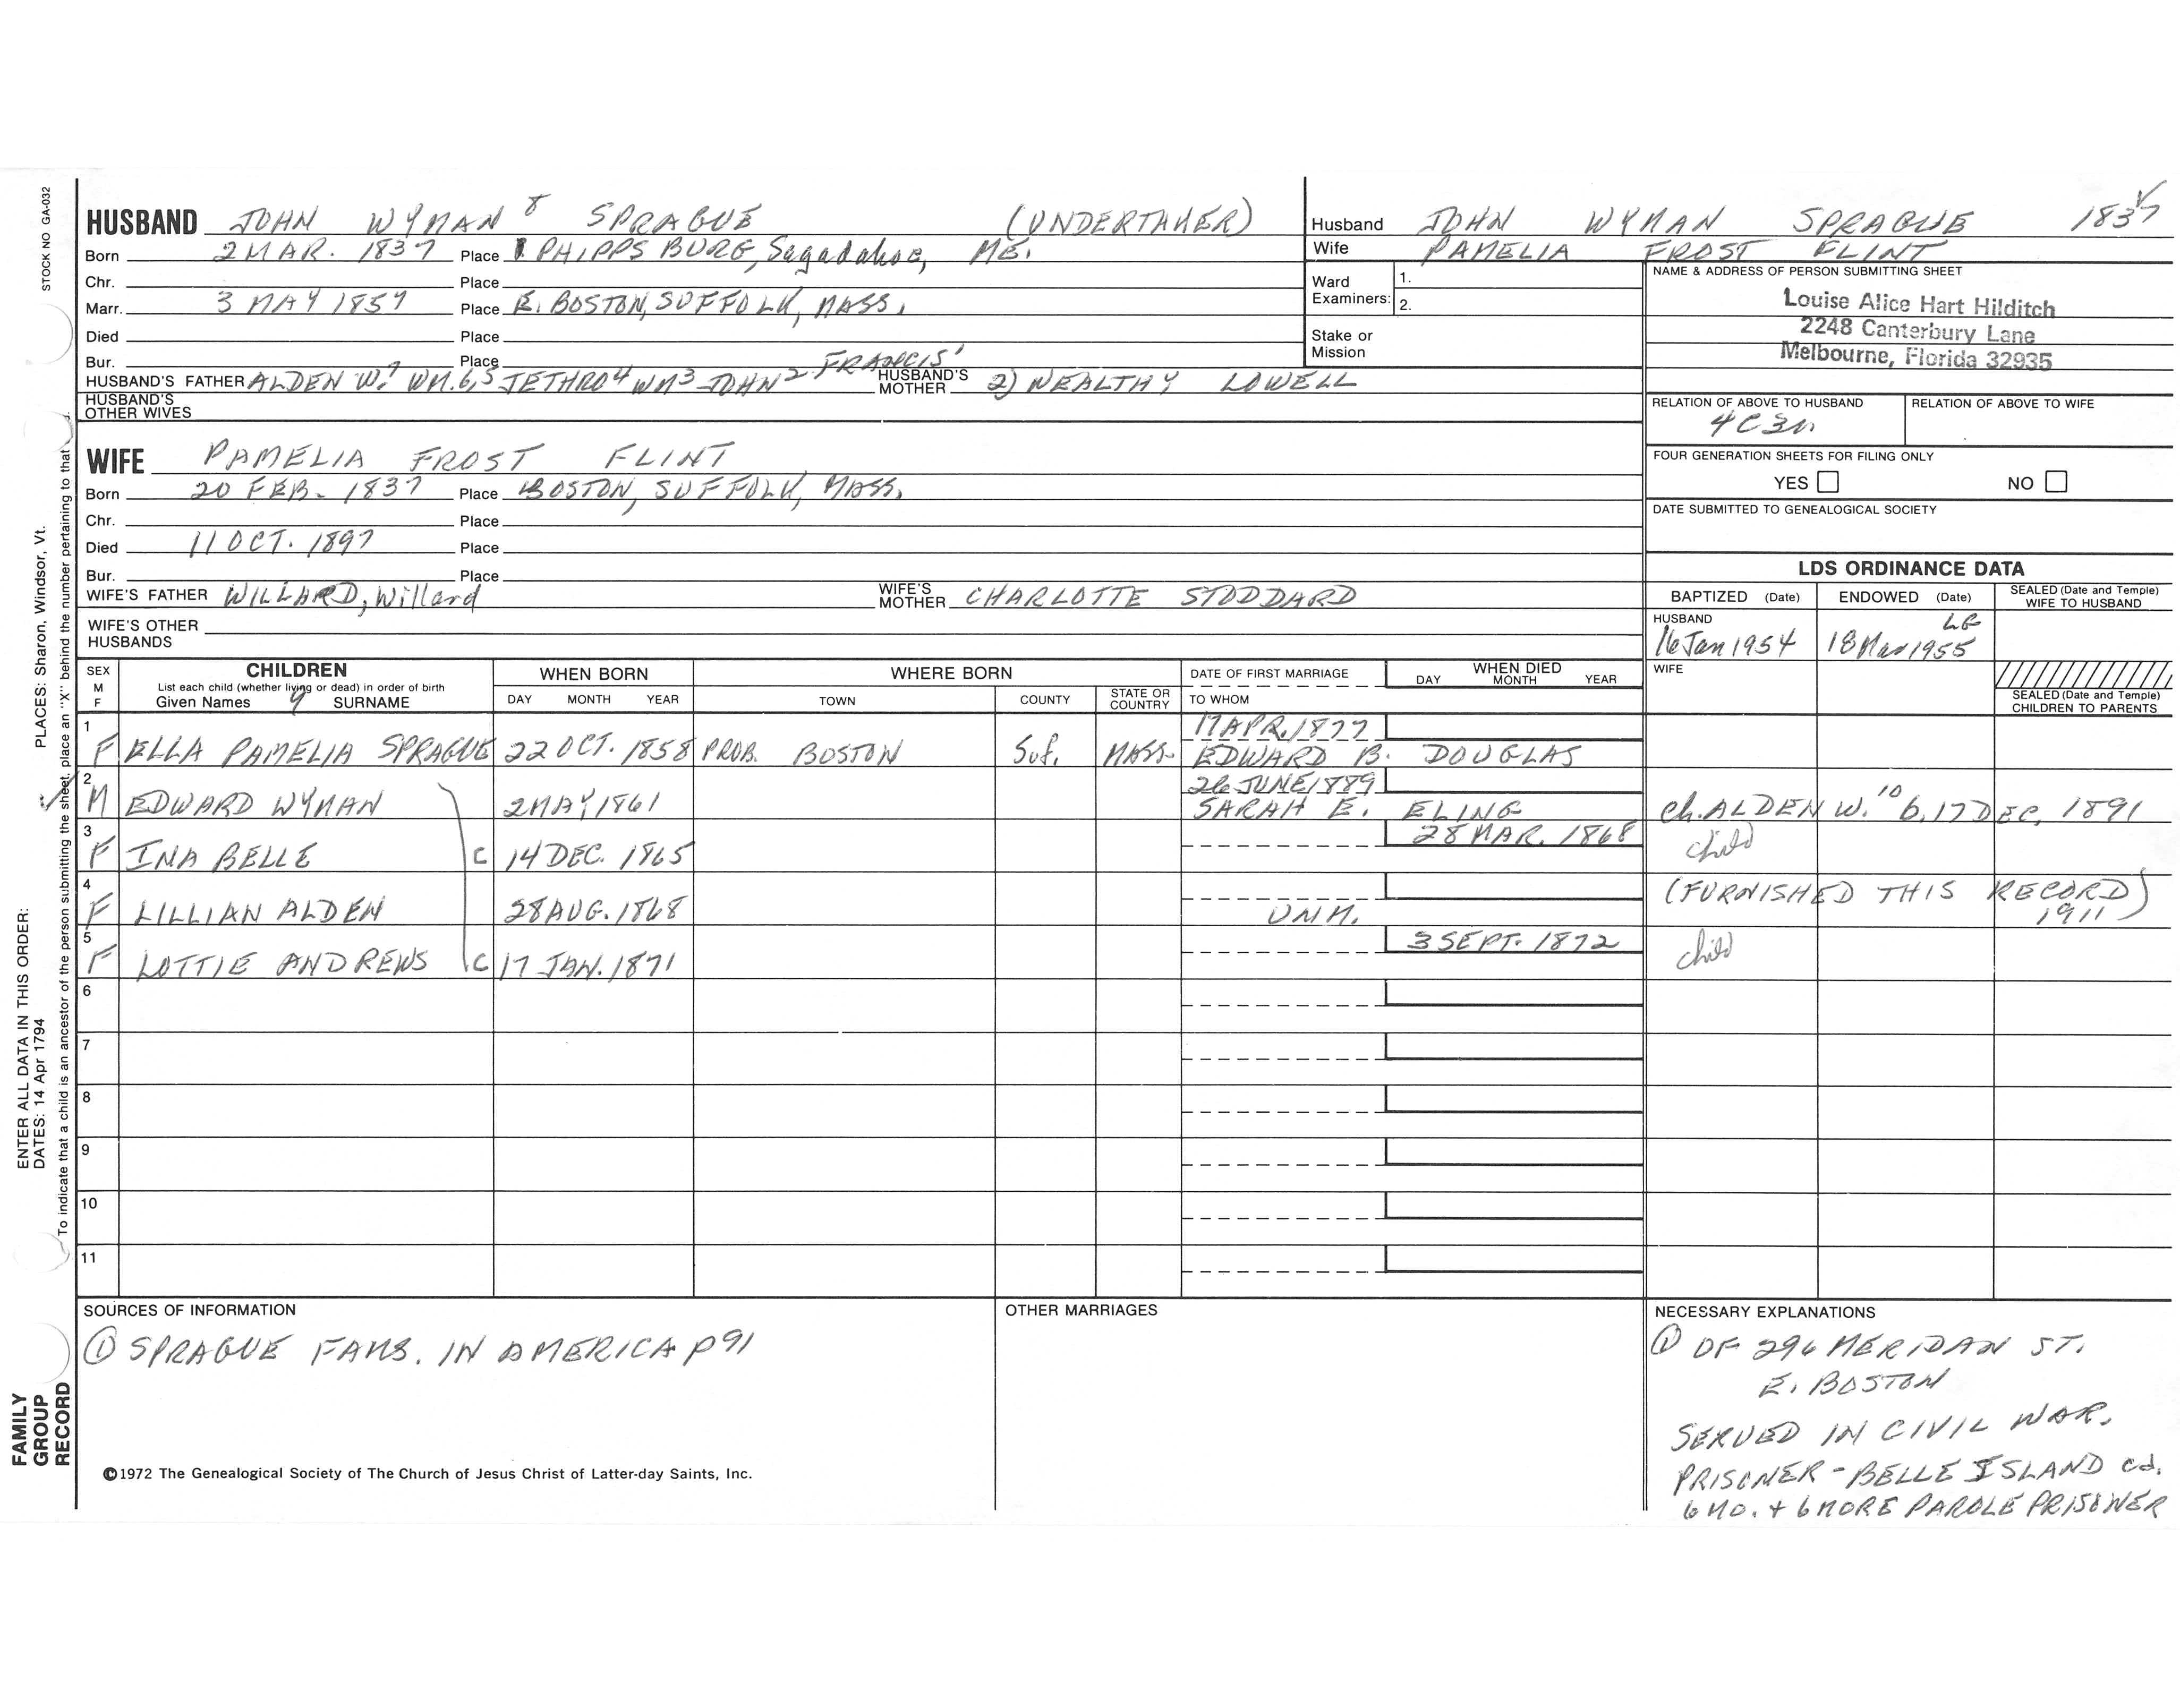 STOCK NO GA-032
PLACES: Sharon, Windsor, Vt.
ENTER ALL DATA IN THIS ORDER:
DATES: 14 Apr 1794
To indicate that a child is an ancestor of the person submitting the sheet, place an "X" behind the number pertaining to that
FAMILY
GROUP
RECORD
HUSBAND JOHN WYMAN 8 SPRAGUE (UNDERTAKER)
Born 2 MAR. 1837 Place PHIPPSBURG, Sagadahoc, ME.
Chr. Place
Marr. 3 MAY 1857 Place E. BOSTON, SUFFOLK, MASS.
Died Place
Bur. Place
HUSBAND'S FATHER ALDEN W.7 WM.6,5 JETHRO4 WM3 JOHN2 FRANCIS1 HUSBAND'S MOTHER 2) WEALTHY LOWELL
HUSBAND'S OTHER WIVES
WIFE PAMELIA FROST FLINT
Born 20 FEB. 1837 Place BOSTON, SUFFOLK, MASS.
Chr. Place
Died 11 OCT. 1897 Place
Bur. Place
WIFE'S FATHER WILLARD, Willard WIFE'S MOTHER CHARLOTTE STODDARD
WIFE'S OTHER HUSBANDS
Husband JOHN WYMAN SPRAGUE 1837
Wife PAMELIA FROST FLINT
Ward Examiners: 1. 2.
Stake or Mission
NAME & ADDRESS OF PERSON SUBMITTING SHEET
Louise Alice Hart Hilditch
2248 Canterbury Lane
Melbourne, Florida 32935
RELATION OF ABOVE TO HUSBAND RELATION OF ABOVE TO WIFE
4C3r.
FOUR GENERATION SHEETS FOR FILING ONLY
YES NO
DATE SUBMITTED TO GENEALOGICAL SOCIETY
LDS ORDINANCE DATA
BAPTIZED (Date) ENDOWED (Date) SEALED (Date and Temple) WIFE TO HUSBAND
HUSBAND
16 Jan 1954 18 Mar 1955
WIFE
SEALED (Date and Temple) CHILDREN TO PARENTS
SEX M F CHILDREN WHEN BORN WHERE BORN DATE OF FIRST MARRIAGE WHEN DIED
List each child (whether living or dead) in order of birth
Given Names SURNAME DAY MONTH YEAR TOWN COUNTY STATE OR COUNTRY TO WHOM DAY MONTH YEAR
1 17 APR. 1877
F ELLA PAMELIA SPRAGUE 22 OCT. 1858 PROB. BOSTON Suf. MASS. EDWARD B. DOUGLAS
2 26 JUNE 1889
M EDWARD WYMAN 2 MAY 1861 SARAH E. ELING Ch. ALDEN W.10 b. 17 DEC. 1891
3 28 MAR. 1868
F INA BELLE C 14 DEC. 1865 child
4 (FURNISHED THIS RECORD)
F LILLIAN ALDEN 28 AUG. 1868 UNM. 1911
5 3 SEPT. 1872
F LOTTIE ANDREWS C 17 JAN. 1871 child
6
7
8
9
10
11
SOURCES OF INFORMATION
① SPRAGUE FAMS. IN AMERICA p 91
©1972 The Genealogical Society of The Church of Jesus Christ of Latter-day Saints, Inc.
OTHER MARRIAGES
NECESSARY EXPLANATIONS
① OF 296 MERIDAN ST.
E. BOSTON
SERVED IN CIVIL WAR.
PRISONER - BELLE ISLAND cd.
6 MO. + 6 MORE PAROLE PRISONER